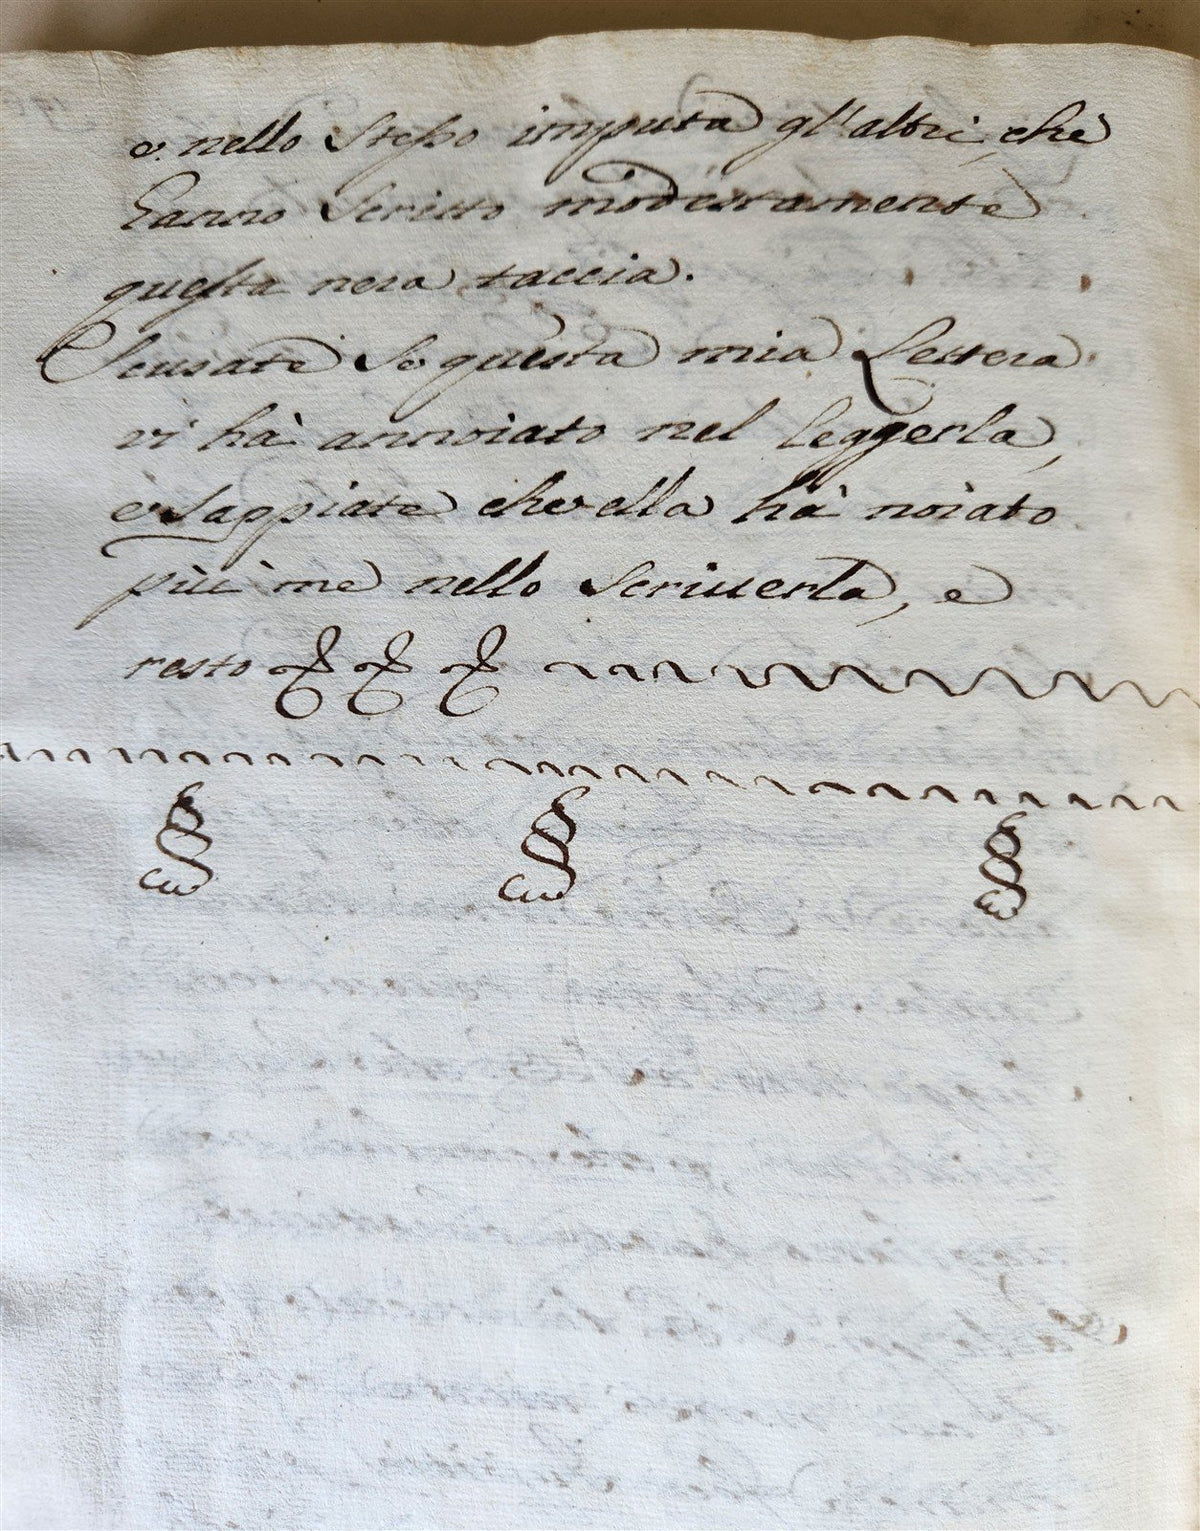 e nello stesso imputa gl'altri, che
hanno scritto modestamente
questa nera taccia.
Scusate se questa mia Lettera
vi hà annoiato nel leggerla,
e sappiate che ella hà noiato
più me nello scriverla, e
resto